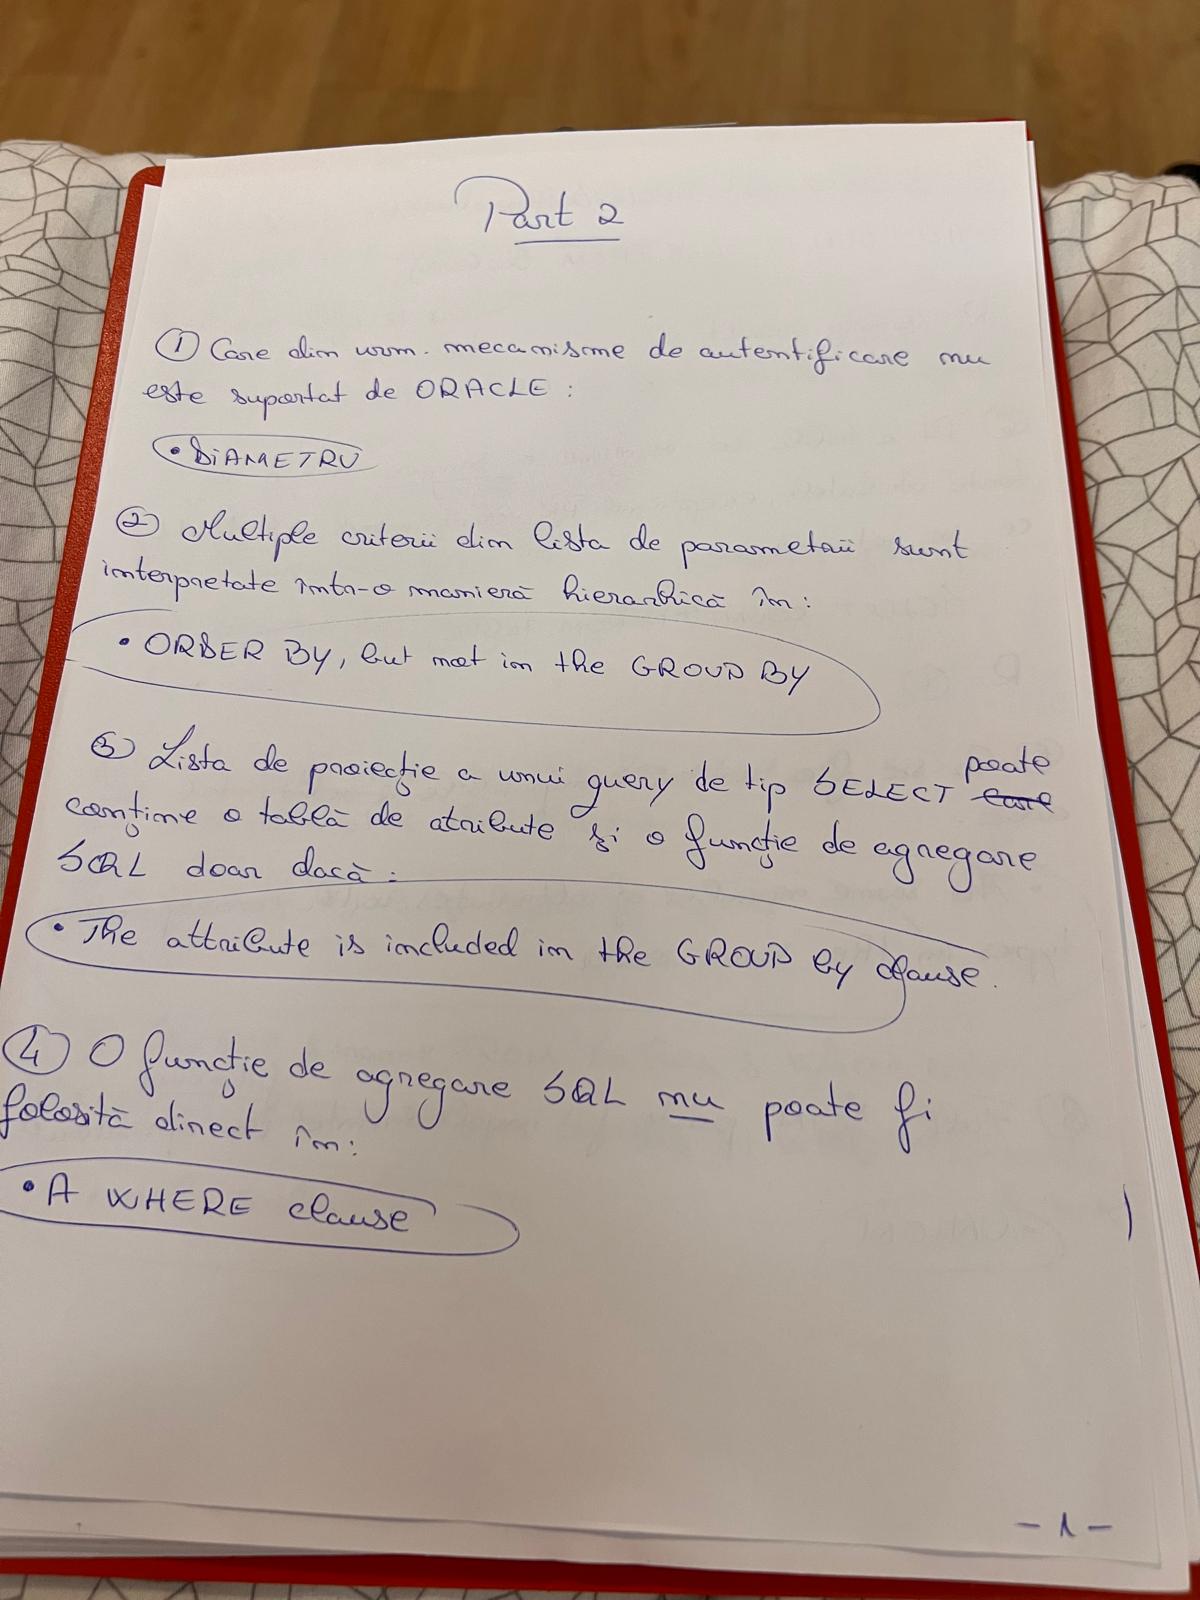 Part 2
① Care din urm. mecanisme de autentificare nu
este suportat de ORACLE :
• DIAMETRU
② Multiple criterii din lista de parametrii sunt
interpretate într-o manieră hierarhică în:
• ORDER BY, but not in the GROUP BY
③ Lista de proiecție a unui query de tip SELECT poate
conține o tablă de atribute și o funcție de agregare
SQL doar dacă:
• The attribute is included in the GROUP by clause.
④ O funcție de agregare SQL nu poate fi
folosită direct în:
• A WHERE clause
- 1 -